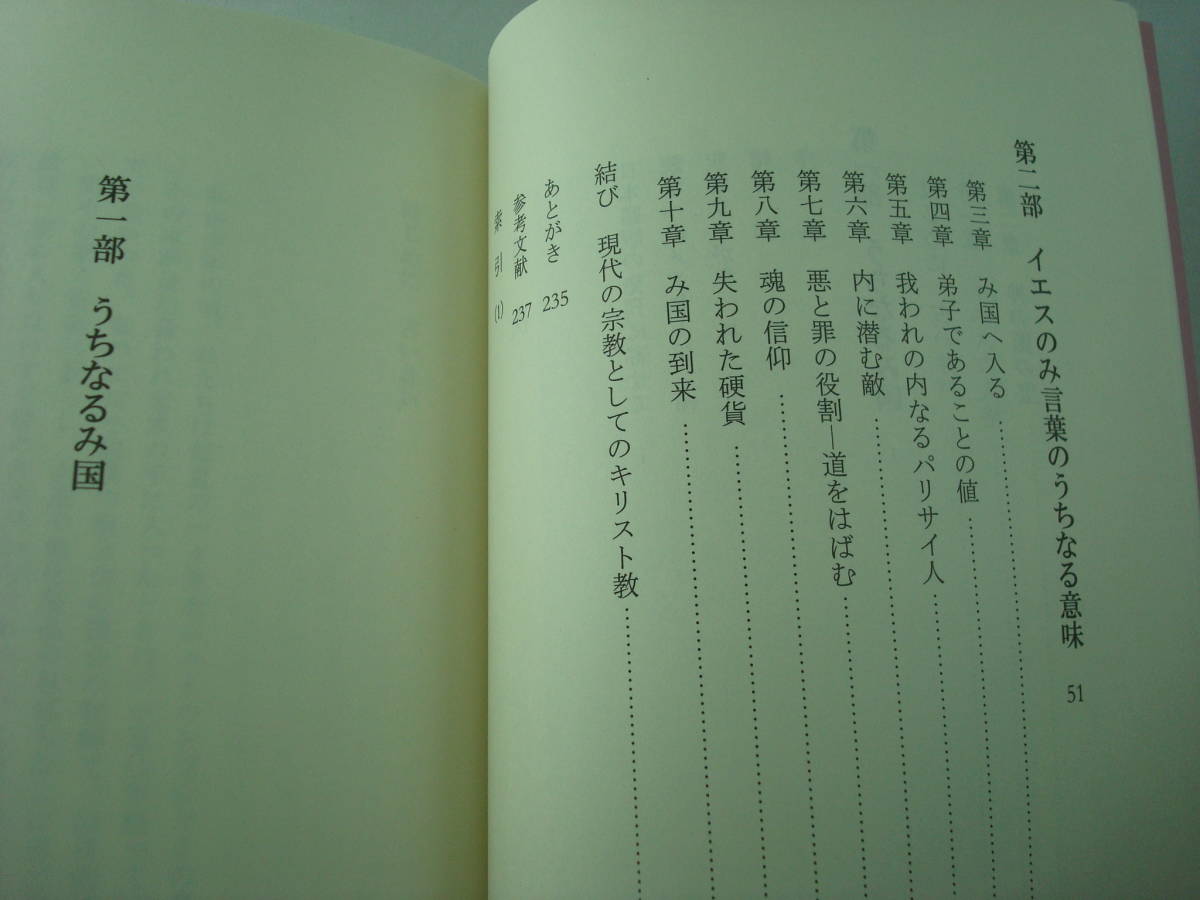 第二部 イエスのみ言葉のうちなる意味 51
第三章 み国へ入る
第四章 弟子であることの値
第五章 我われの内なるパリサイ人
第六章 内に潜む敵
第七章 悪と罪の役割―道をはばむ
第八章 魂の信仰
第九章 失われた硬貨
第十章 み国の到来
結び 現代の宗教としてのキリスト教
あとがき 235
参考文献 237
索引 (1)
第一部 うちなるみ国